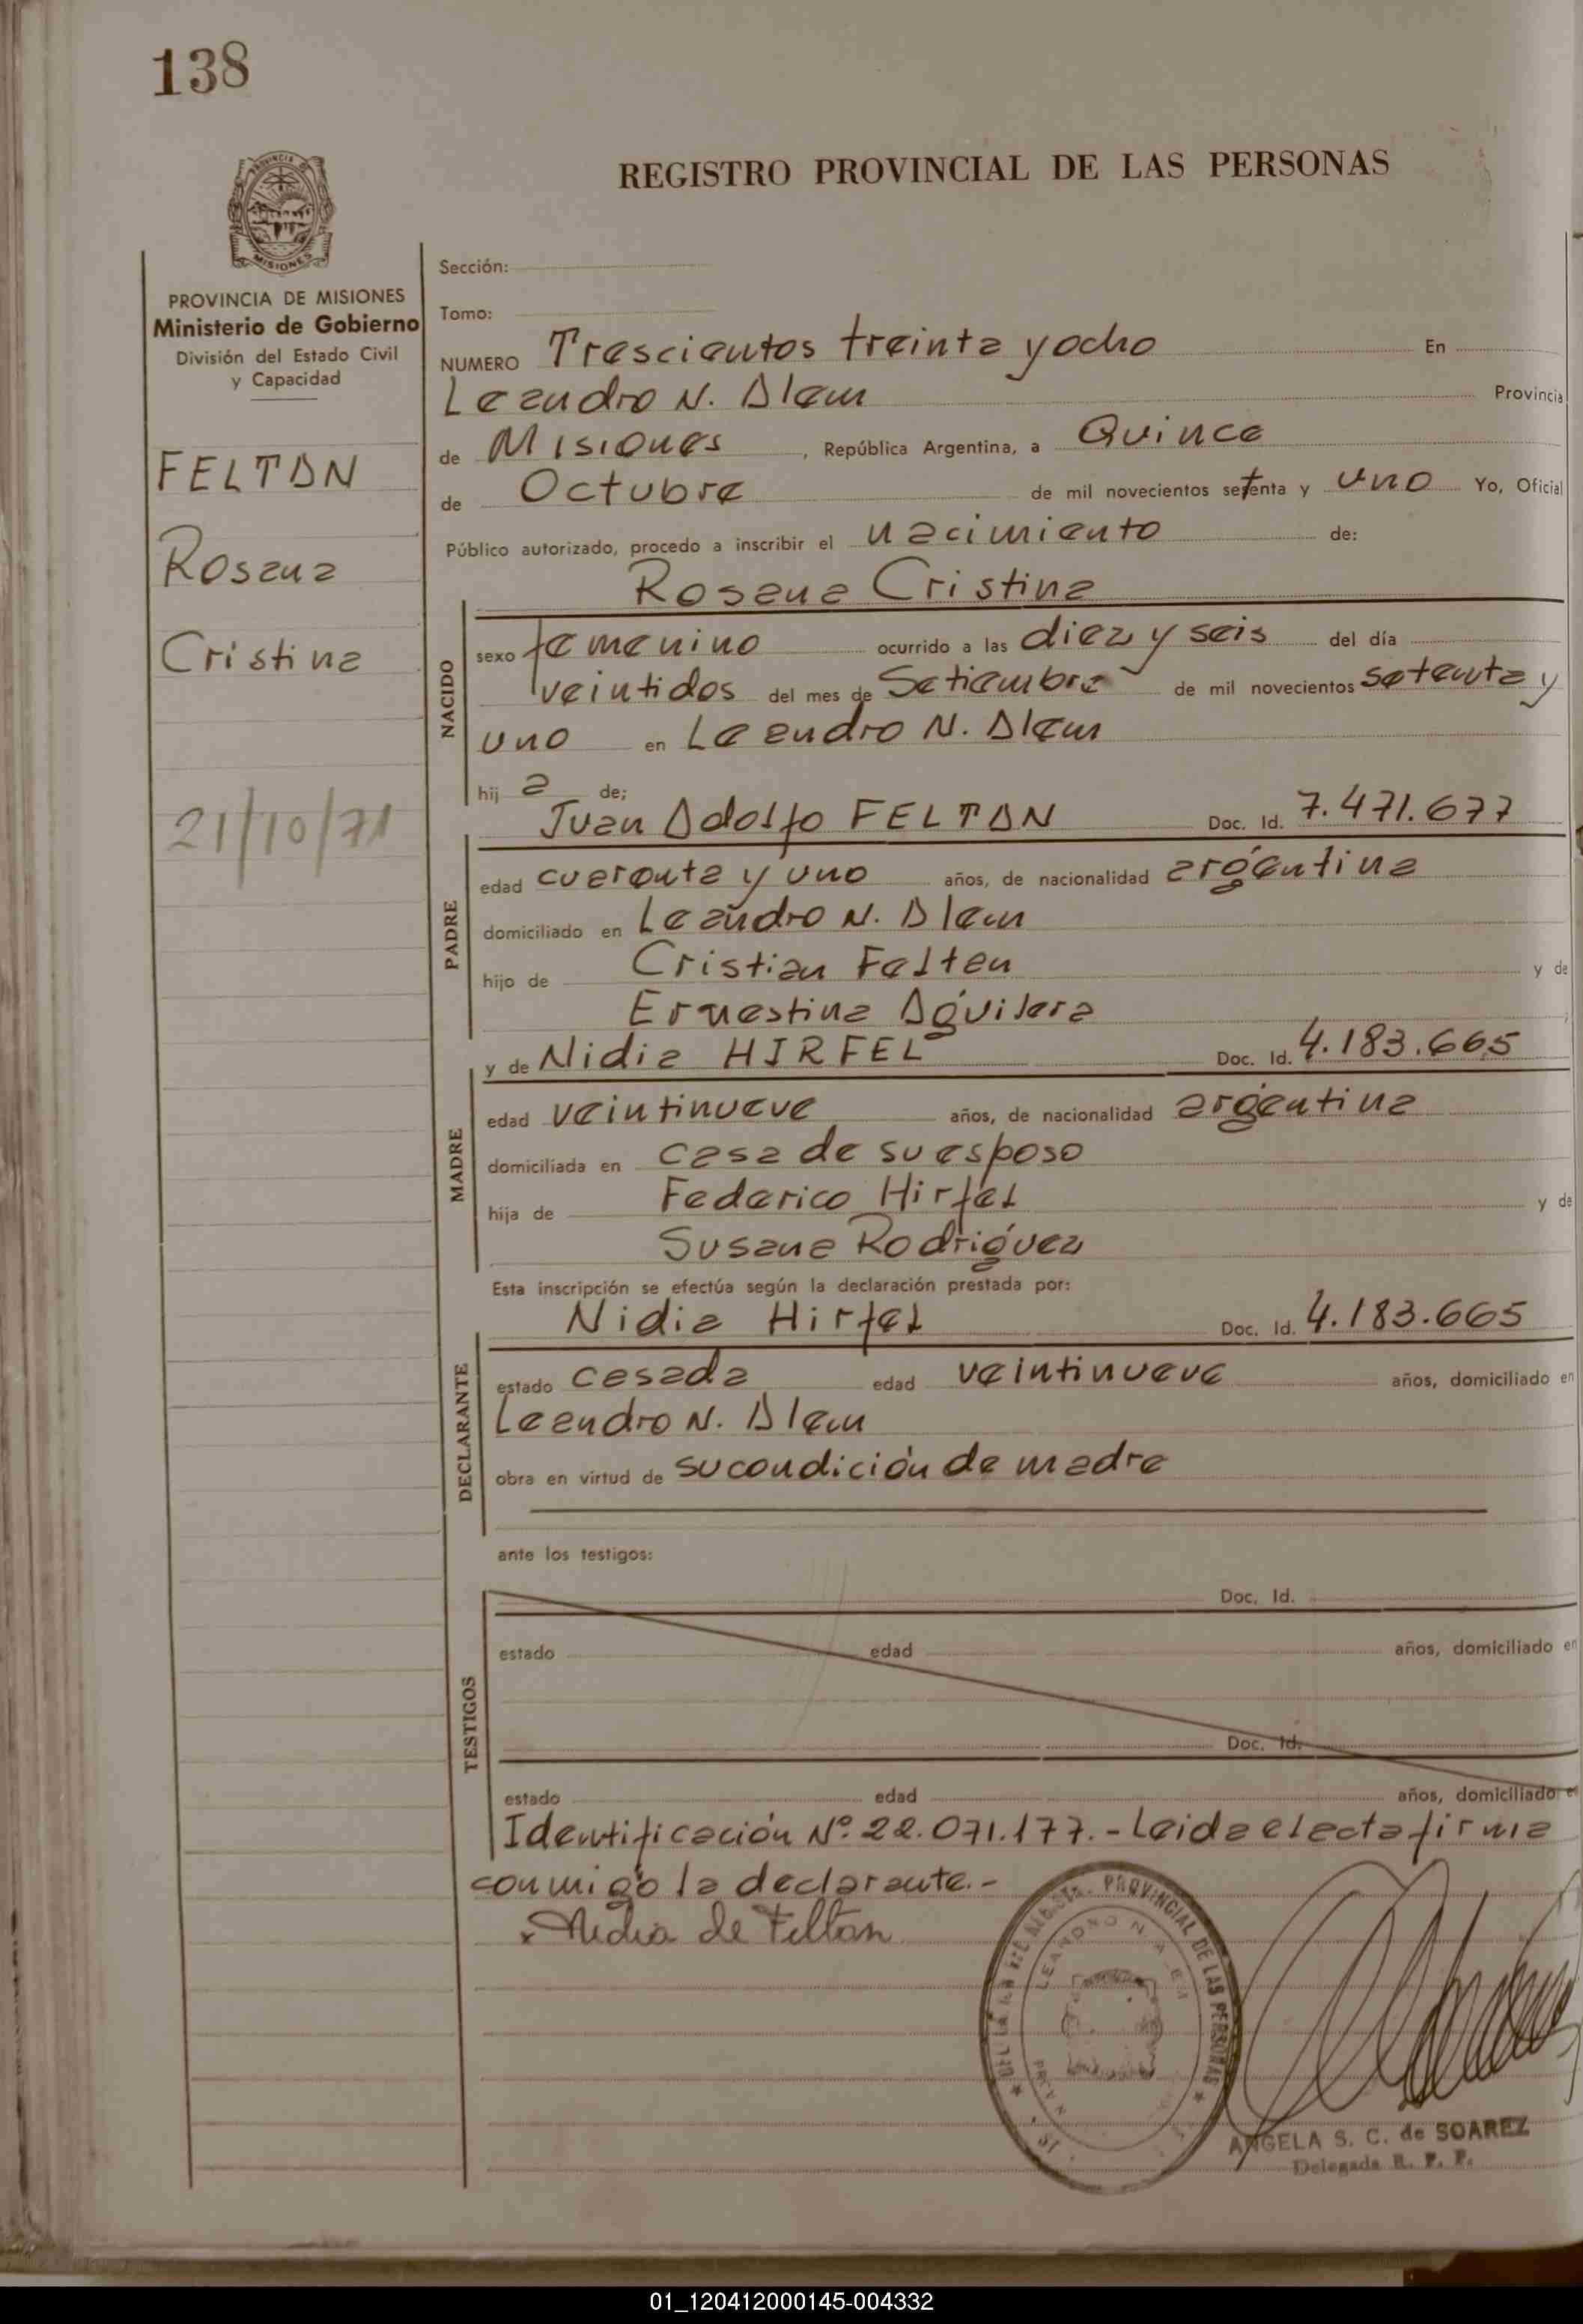 138
REGISTRO PROVINCIAL DE LAS PERSONAS
MISIONES
PROVINCIA DE MISIONES
Ministerio de Gobierno
División del Estado Civil
y Capacidad
FELTAN
Rosana
Cristina
21/10/71
Sección:
Tomo:
NUMERO Trescientos treinta y ocho En
Leandro N. Alem Provincia
de Misiones, República Argentina, a Quince
de Octubre de mil novecientos setenta y uno Yo, Oficial
Público autorizado, procedo a inscribir el nacimiento de:
Rosana Cristina
NACIDO
sexo femenino ocurrido a las diez y seis del día
veintidos del mes de Setiembre de mil novecientos setenta y
uno en Leandro N. Alem
hij a de;
Juan Adolfo FELTAN Doc. Id. 7.471.677
PADRE
edad cuarenta y uno años, de nacionalidad argentina
domiciliado en Leandro N. Alem
hijo de Cristian Felten y de
Ernestina Aguilera
y de Nidia HIRFEL Doc. Id. 4.183.665
MADRE
edad veintinueve años, de nacionalidad argentina
domiciliada en casa de su esposo
hija de Federico Hirfel y de
Susana Rodriguez
Esta inscripción se efectúa según la declaración prestada por:
Nidia Hirfel Doc. Id. 4.183.665
DECLARANTE
estado casada edad veintinueve años, domiciliado en
Leandro N. Alem
obra en virtud de su condición de madre
ante los testigos:
TESTIGOS
Doc. Id.
estado edad años, domiciliado en
Doc. Id.
estado edad años, domiciliado e
Identificación Nº 22.071.177.- Leida el acta firma
conmigo la declarante.-
x Nidia de Feltan
PROVINCIAL DE LAS PERSONAS
LEANDRO N. ALEM
ANGELA S. C. de SOAREZ
Delegada R. P. P.
01_120412000145-004332